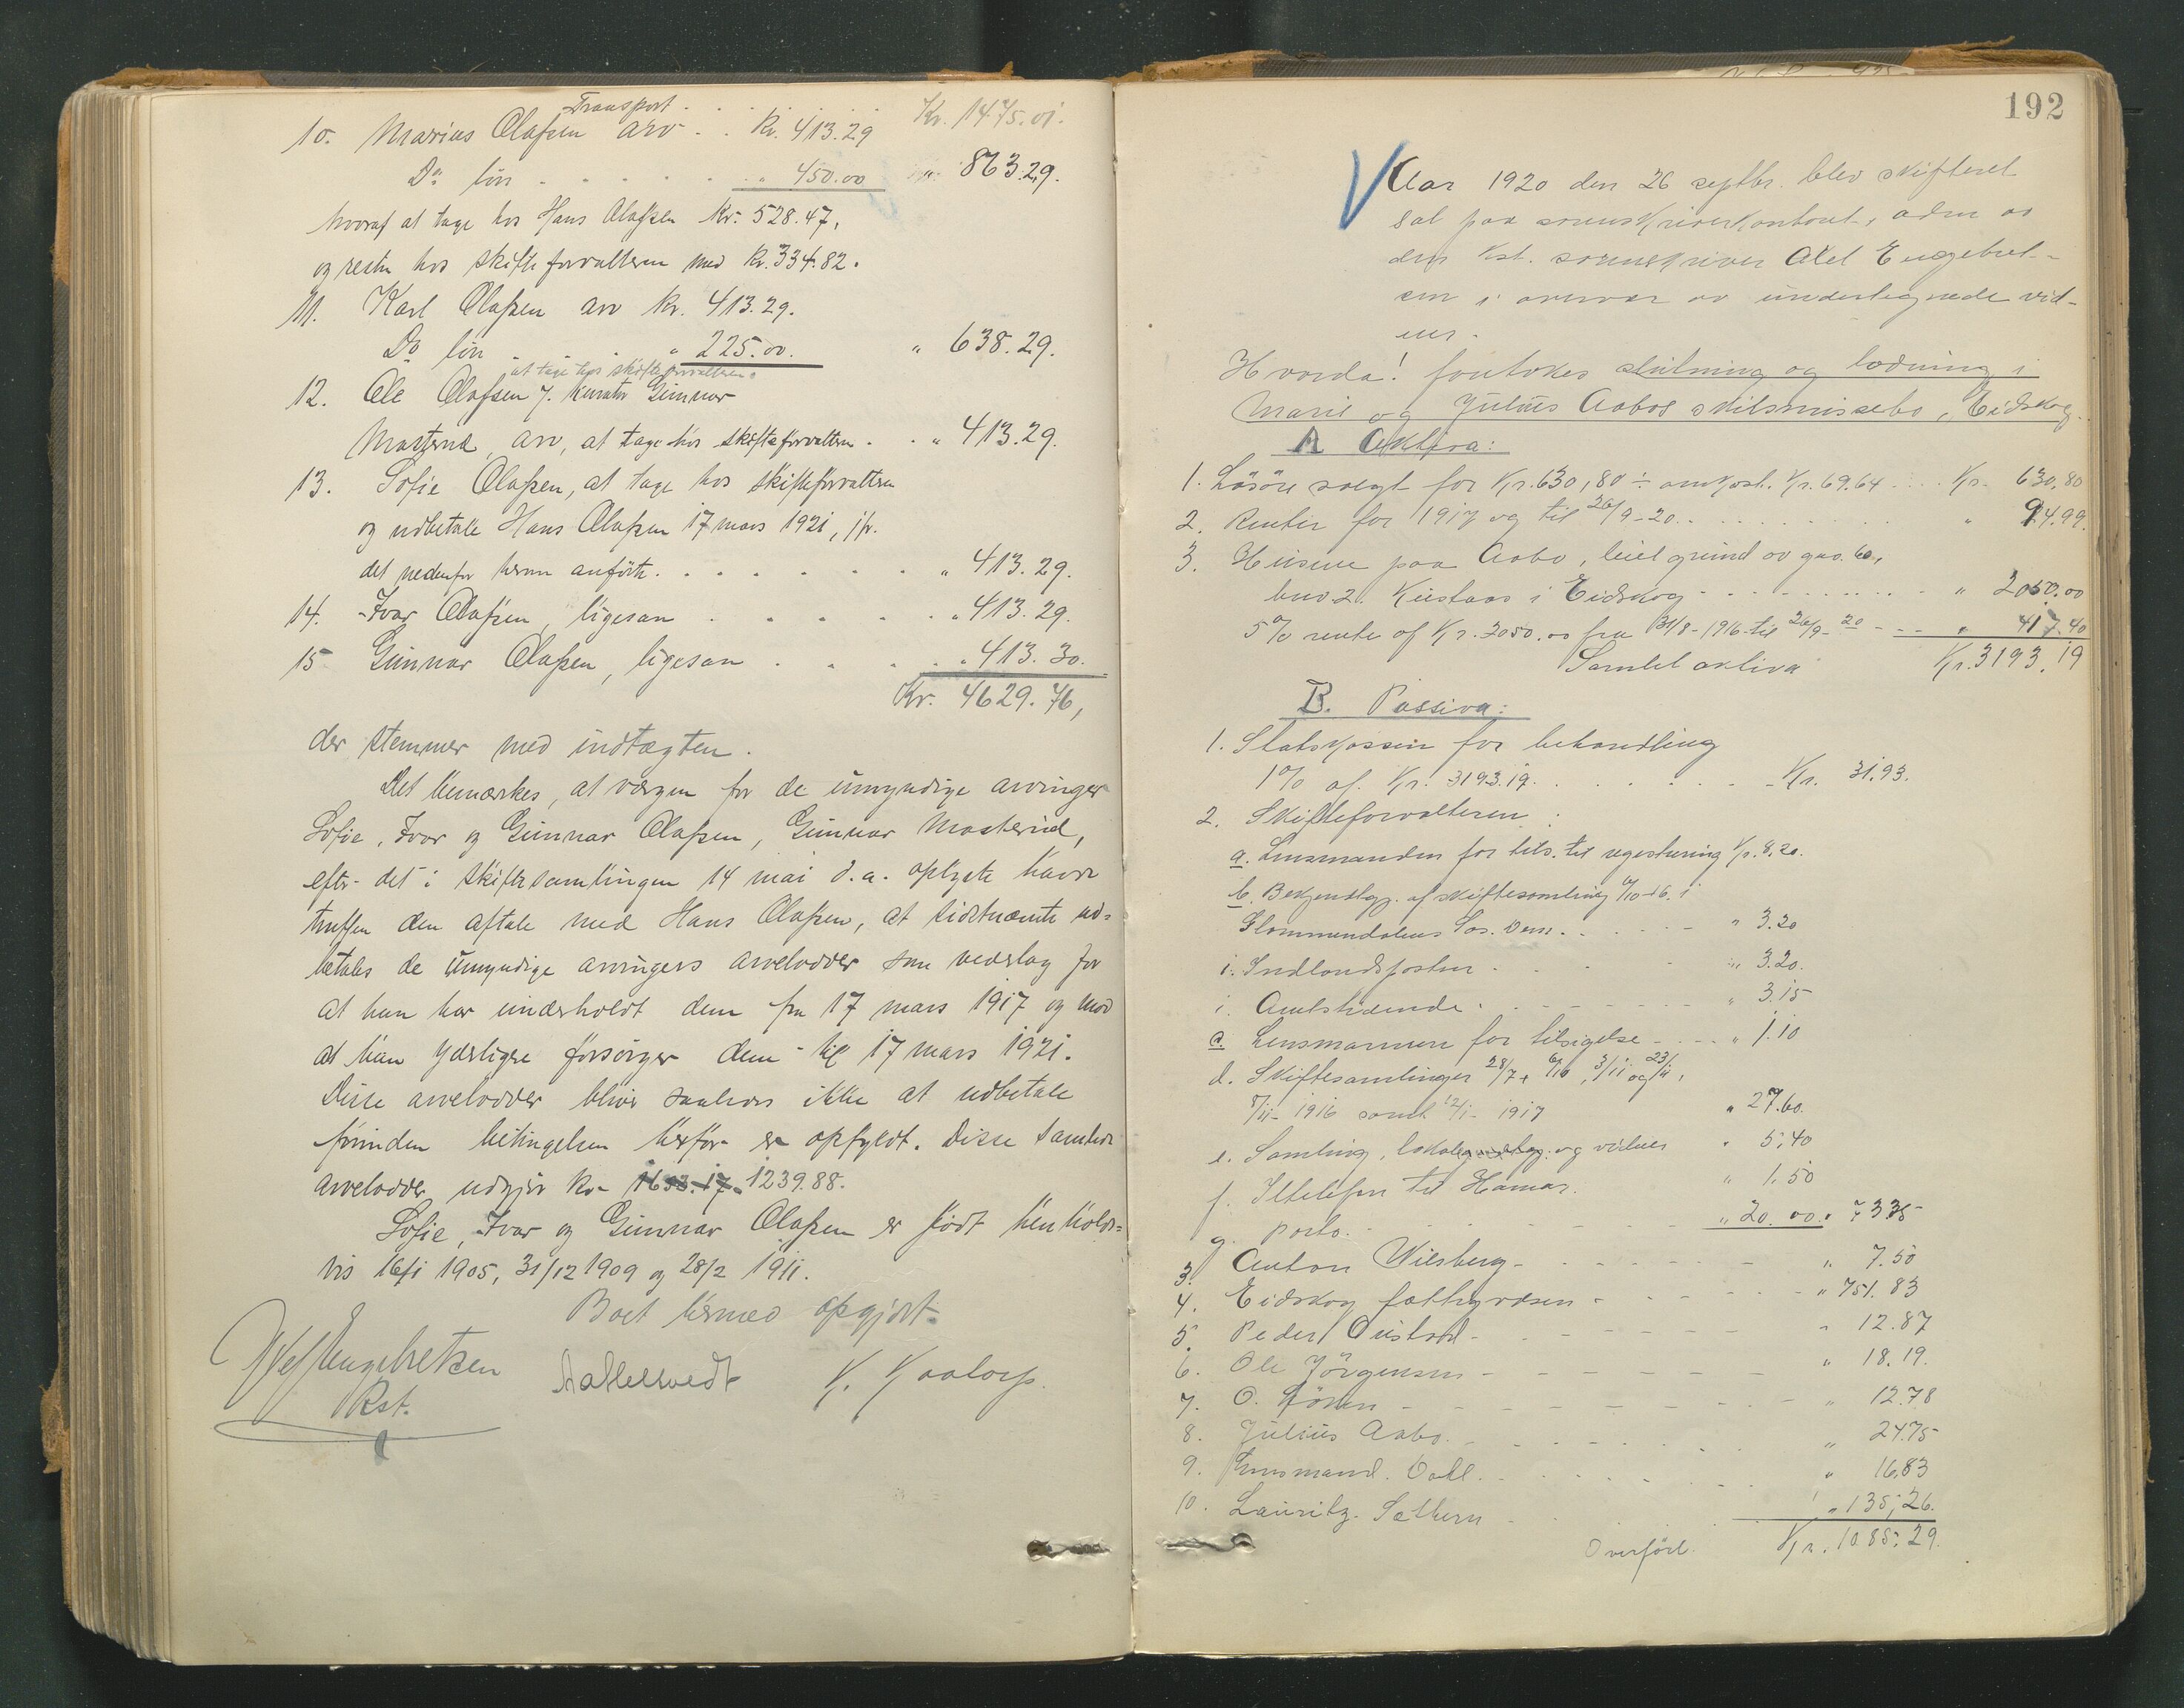 Transport . . . Kr. 1475.01.
10. Marius Olafsen arv . . Kr. 413.29
Do løn . . . . . . " 450.00 " 863.29.
hvoraf at tage hos Hans Olafsen Kr. 528.47,
og resten hos skifteforvalteren med Kr. 334.82.
11. Karl Olafsen arv Kr. 413.29.
Do løn . . . " 225.00. " 638.29.
at tage hos skifteforvalteren.
12. Ole Olafsen v. kurator Gunnar
Masterud, arv, at tage hos skifteforvalteren . . " 413.29.
13. Sofie Olafsen, at tage hos skifteforvalteren
og udbetale Hans Olafsen 17 mars 1921, jfr.
det nedenfor herom anførte. . . . . . . . " 413.29.
14. Ivar Olafsen, ligesaa . . . . . " 413.29.
15 Gunnar Olafsen, ligesaa . . . . . " 413.30.
Kr. 4629.76,
der stemmer med indtægten.
Det bemærkes, at værgen for de umyndige arvinger
Sofie, Ivar og Gunnar Olafsen, Gunnar Masterud,
efter det i skiftesamlingen 14 mai d.a. oplyste havde
truffen den aftale med Hans Olafsen, at sidstnævnte ud-
betales de umyndige arvingers arvelodder som vederlag for
at han har underholdt dem fra 17 mars 1917 og mod
at han yderligere forsørger dem til 17 mars 1921.
Disse arvelodder bliver saaledes ikke at udbetale
førinden betingelsen herfor er opfyldt. Disse samlede
arvelodder udgjør kr. 1653.17. 1239.88.
Sofie, Ivar og Gunnar Olafsen er født henholds-
vis 16/1 1905, 31/12 1909 og 28/2 1911.
Boet hermed opgjort.
Axel Engebretsen
Kst.
K. Kaatorp.
192
Aar 1920 den 26 septbr. blev skifteret
sat paa sorenskriverkontoret, adm av
den kst. sorenskriver Axel Engebret-
sen i overvær av undertegnede vid-
ner.
Hvorda! foretokes slutning og lodning i
Marie og Julius Aabos skilsmissebo, Eidskog.
A Aktiva:
1. Løsøre solgt for Kr. 630,80 ÷ omkost. Kr. 69.64 . . . . Kr. 630,80
2. Renter for 1917 og til 26/9-20. . . . . . . . . " 94.99.
3. Husene paa Aabo, leiet grund av gno. 60,
bno 2. Kustaas i Eidskog . . . . . . . . . " 2050.00
5% rente af Kr. 2050.00 fra 31/8-1916 til 26/9-20 - - - " 417.40
Samlet aktiva Kr. 3193.19
B. Passiva:
1. Statskassen for behandling
1% af Kr. 3193.19. . . . . . . . - Kr. 31.93.
2. Skifteforvalteren :
a. Lensmanden for tils. til registrering Kr. 8.20.
b. Bekjendtgj. af skiftesamling 6/10-16. i
Glommendalens Soc. Dem. . . . . . - " 3.20
i. Indlandsposten . . . . " 3.20.
i. Amtstidende . . . . . . . " 3.15
c. Lensmannen for tilsigelse - . . . " 1.10
d. Skiftesamlinger 28/7, 6/10, 3/11 og 23/11,
1916 samt 12/1- 1917 " 27.60.
e. Samling, lokale og vidner " 5,40
f. Iltelefon til Hamar. " 1.50
g. porto. . . . . . . . " 20.00. " 73 35
3. Anton Vilsberg - . . . . . . " 7.50
4. Eidskog fattigvæsen - . . . . . " 751.83
5. Peder - . . . . . . " 12.87
6. Ole Jörgensen - - - - - " 18.19.
7. O. - - - - - - " 12.78
8. Julius Aabo. . . . . . . . " 24.75
9. Lensmand. Dahl. . . . . . . . " 16,83
10. Lauritz Sæthern . . . . " 135,26.
Overført Kr. 1085,29.